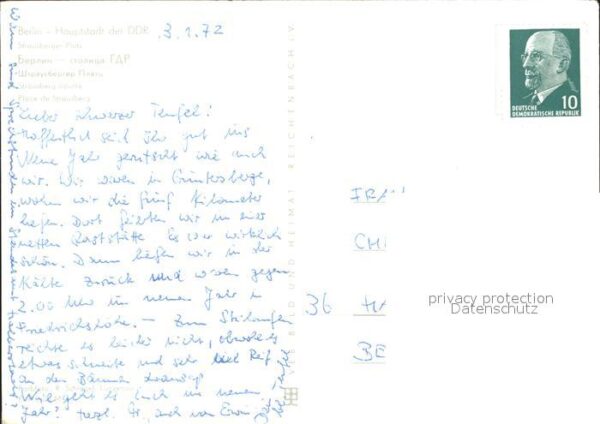 Berlin - Hauptstadt der DDR
3.1.72
Strausberger Platz
Берлин — столица ГДР
Штраусбергер Плятц
Place de Strausberg
Lieber schwarzer Teufel!
Hoffentlich seid Ihr gut ins
Neue Jahr gerutscht wie auch
wir. Wir waren in Güntersberge,
wohin wir die fünf Kilometer
liefen. Dort feierten wir in einer
netten Raststätte. Es war wirklich
schön. Dann liefen wir in der
Kälte zurück und waren gegen
2.00 Uhr im neuen Jahr in
Friedrichshöhe. — Zum Skilaufen
reichte es leider nicht, obwohl es
etwas schneite und sehr viel Reif
an den Bäumen
Wie geht es Euch im neuen
Jahr? Herzl. Gr. auch von Erwin
VEB BILD UND HEIMAT REICHENBACH I.V.
10
DEUTSCHE
DEMOKRATISCHE REPUBLIK
36
BE
privacy protection
Datenschutz